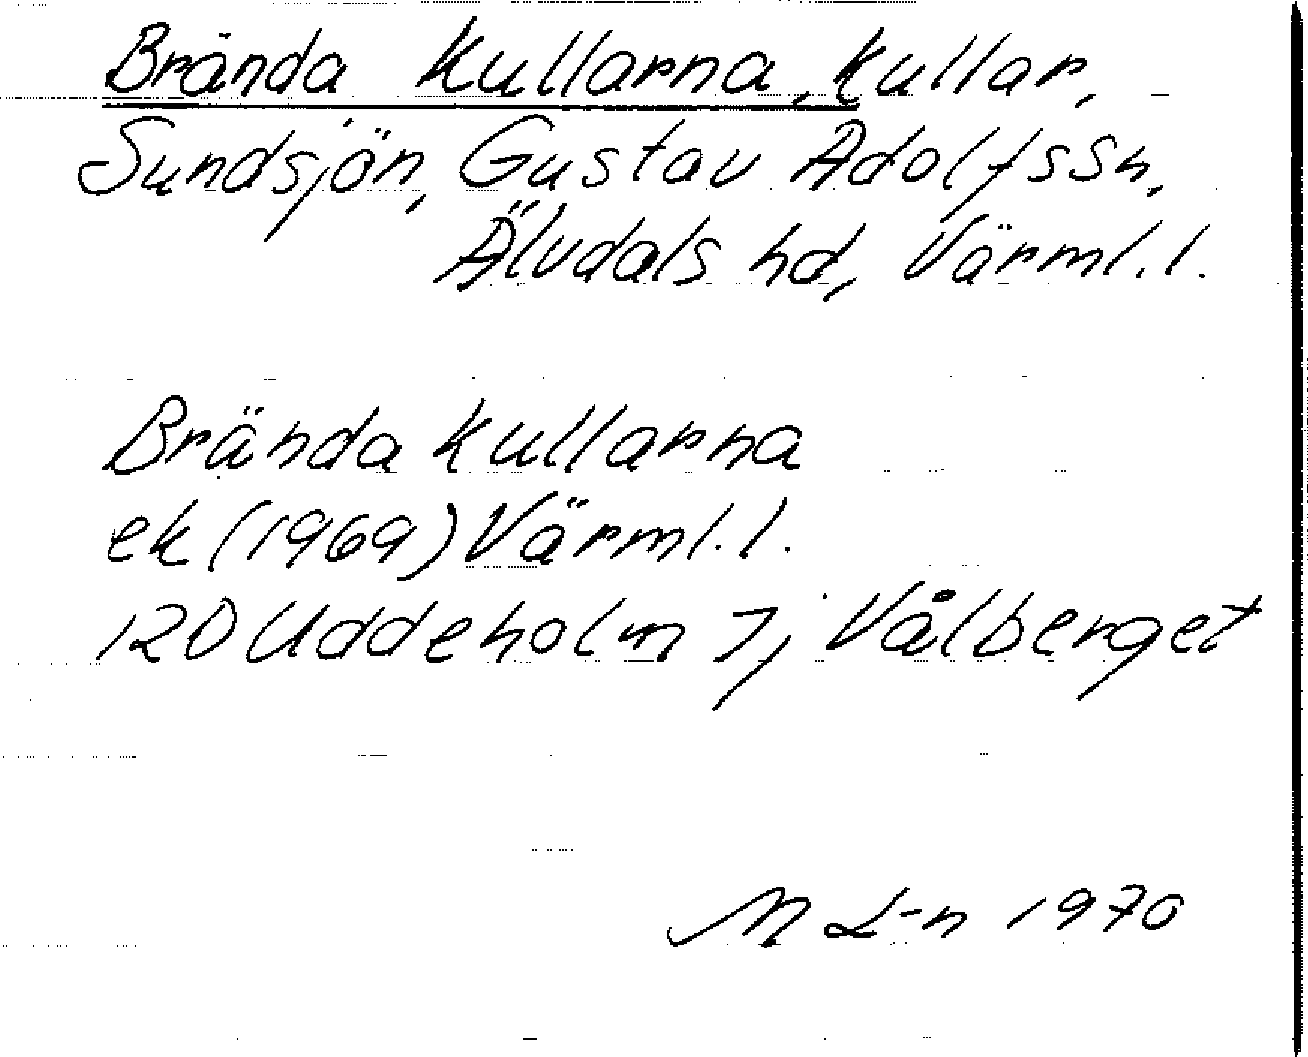 Brända Kullarna, kullar,
Sundsjön, Gustav Adolfssn,
Älvdals hd, Värml.l.
Brända kullarna
ek (1969) Värml.l.
12D Uddeholm 7j Vålberget
M L-n 1970